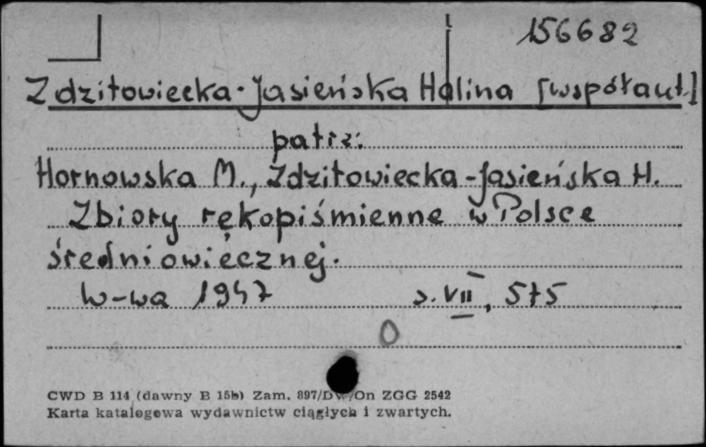 156682
Zdzitowiecka-Jasieńska Halina [współaut.]
patrz:
Hornowska M., Zdzitowiecka-Jasieńska H.
Zbiory rękopiśmienne w Polsce
średniowiecznej.
W-wa 1947 s. VII, 575
CWD B 114 (dawny B 15b) Zam. 897/DW/On ZGG 2542
Karta katalogowa wydawnictw ciągłych i zwartych.